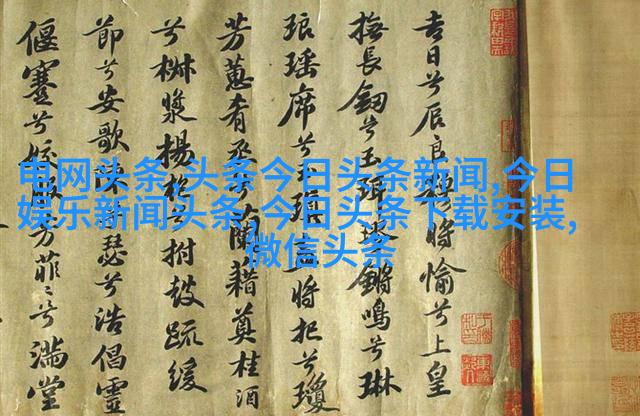 电网头条,头条今日头条新闻,今日
娱乐新闻头条,今日头条下载安装,
微信头条
吉日兮辰良穆將愉兮上皇
撫長劒兮玉珥璆鏘鳴兮琳
琅瑤席兮玉瑱將把兮瓊
芳蕙肴烝蘭藉奠桂酒
兮漿揚枹兮拊鼓疏緩
節兮安歌陳瑟兮浩倡靈
偃蹇兮姣服芳菲〻兮滿堂